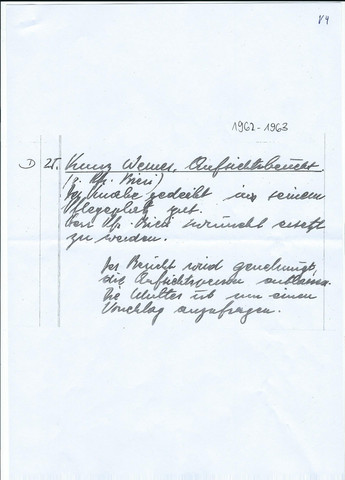 84
1962-1963
D 25. Kunz Werner, Aufsichtsbericht.
(s. Pfr. Bieri)
Der Knabe gedeiht in seinem
Pflegeplatz gut.
Herr Pfr. Bieri wünscht ersetzt
zu werden.
Der Bericht wird genehmigt,
die Aufsichtsperson entlassen.
Die Mutter ist um einen
Vorschlag anzufragen.